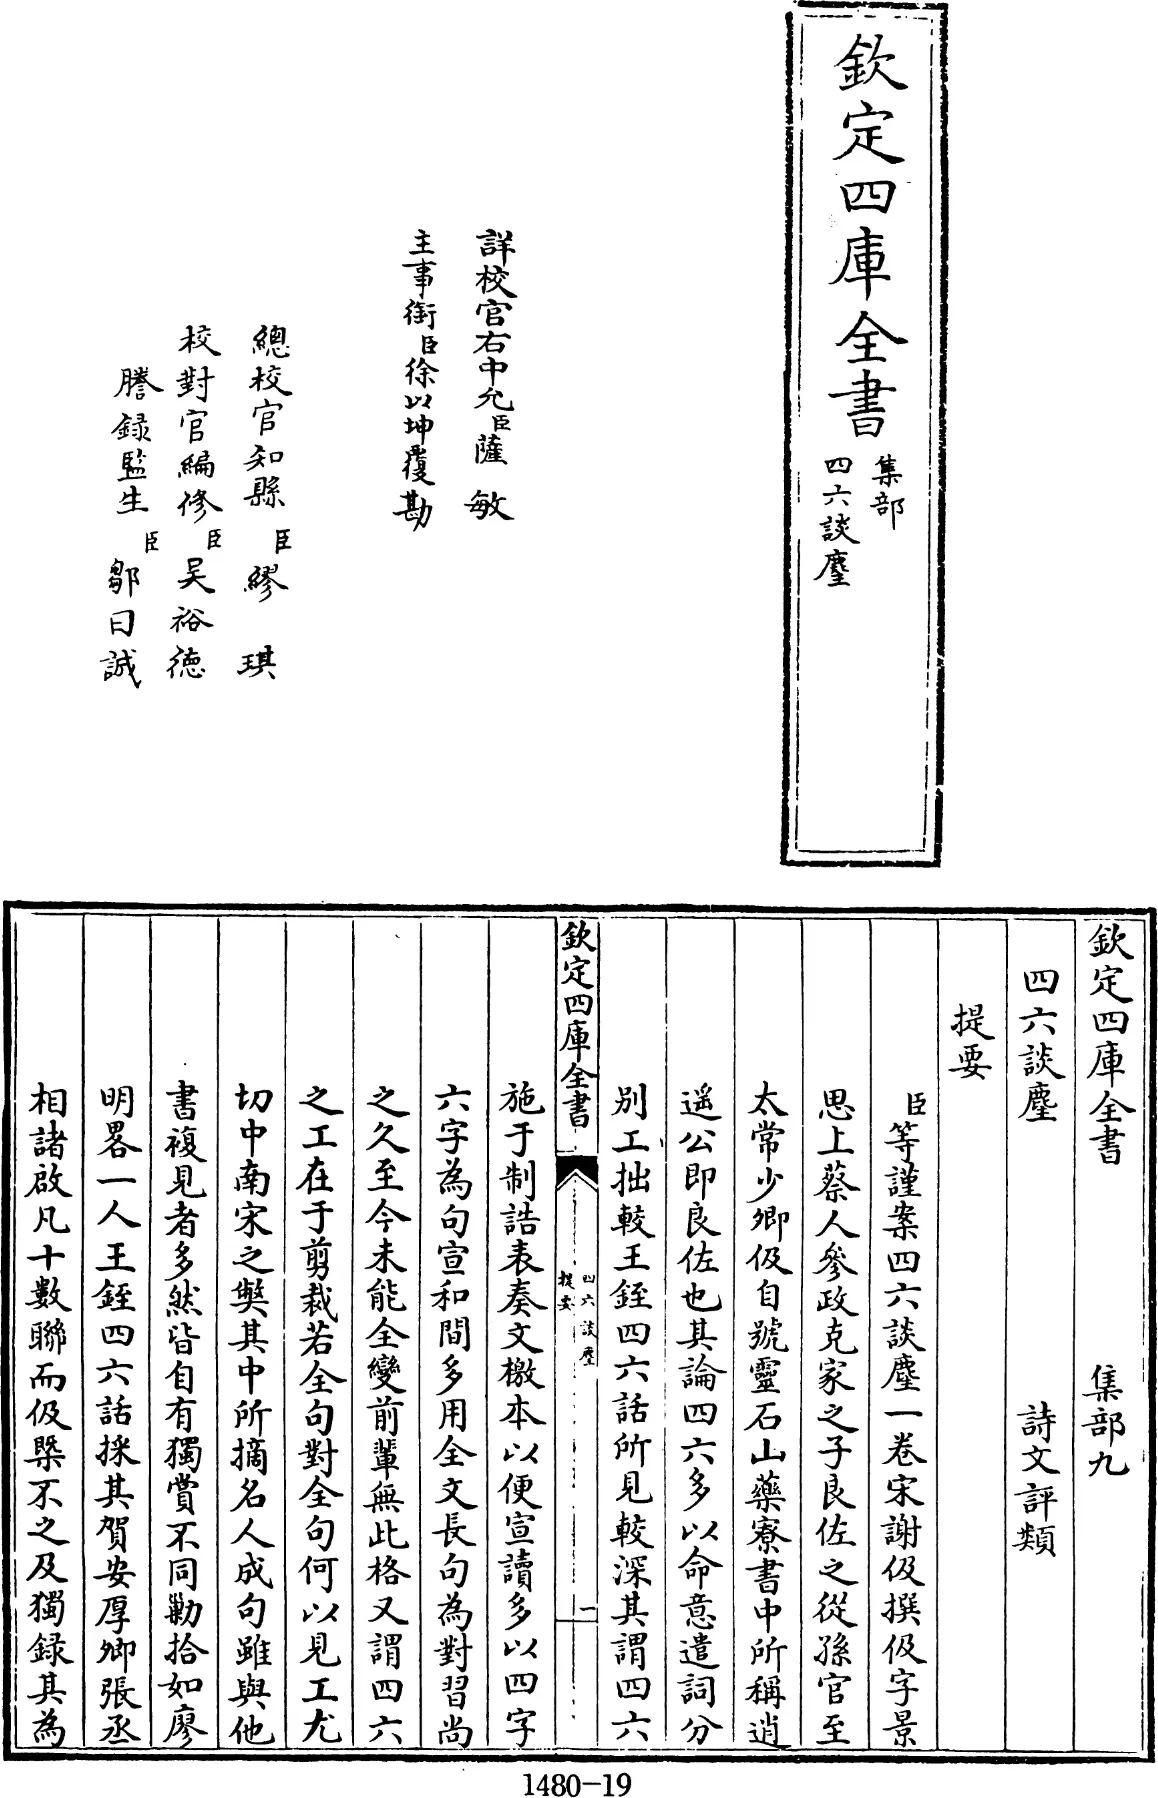 欽定四庫全書
集部
四六談麈
詳校官右中允臣薩敏
主事銜臣徐以坤覆勘
總校官知縣臣繆琪
校對官編修臣吳裕德
謄錄監生臣鄒曰誠
欽定四庫全書　集部九
四六談麈　詩文評類
提要
臣等謹案四六談麈一卷宋謝伋撰伋字景
思上蔡人參政克家之子良佐之從孫官至
太常少卿伋自號靈石山藥寮書中所稱逍
遥公即良佐也其論四六多以命意遣詞分
別工拙較王銍四六話所見較深其謂四六
欽定四庫全書
四六談麈
提要
一
施于制誥表奏文檄本以便宣讀多以四字
六字為句宣和間多用全文長句為對習尚
之久至今未能全變前輩無此格又謂四六
之工在于剪裁若全句對全句何以見工尤
切中南宋之弊其中所摘名人成句雖與他
書複見者多然皆自有獨賞不同勦拾如廖
明畧一人王銍四六話採其賀安厚卿張丞
相諸啟凡十數聯而伋槩不之及獨録其為
1480-19